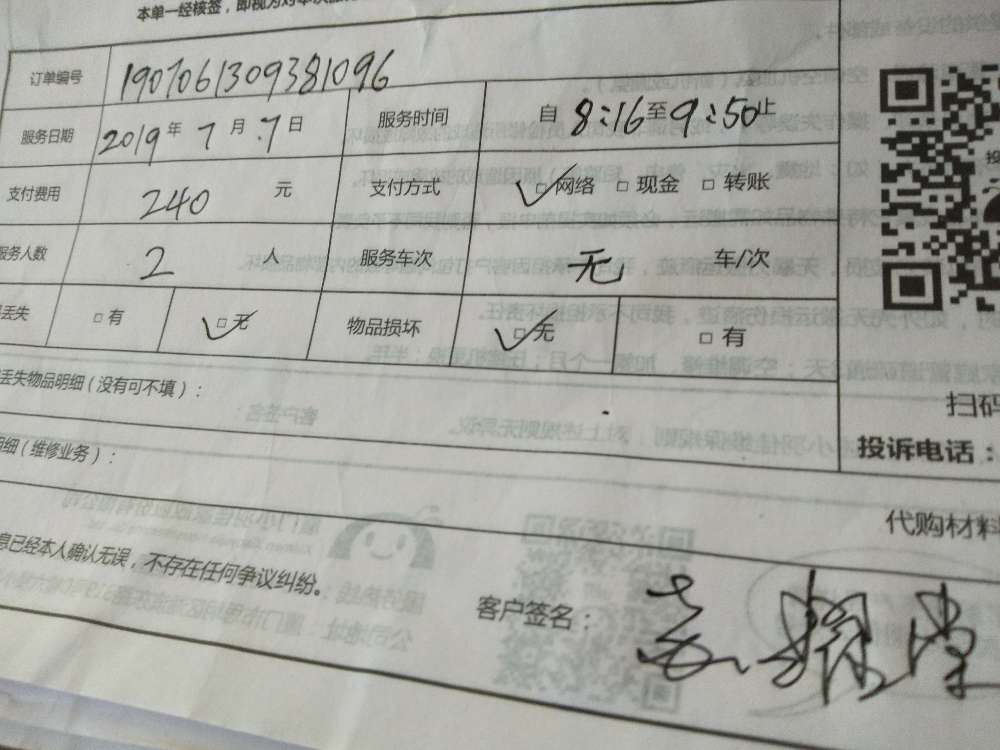 本单一经核签，即视为对本次服
订单编号 190706130938 1096
服务日期 2019年7月7日 服务时间 自8:16至9:50止
支付费用 240元 支付方式 ☑网络 □现金 □转账
服务人数 2人 服务车次 无 车/次
丢失 □有 ☑无 物品损坏 ☑无 □有
丢失物品明细（没有可不填）：
明细（维修业务）：
扫码
投诉电话：
代购材料
息已经本人确认无误，不存在任何争议纠纷。
客户签名：